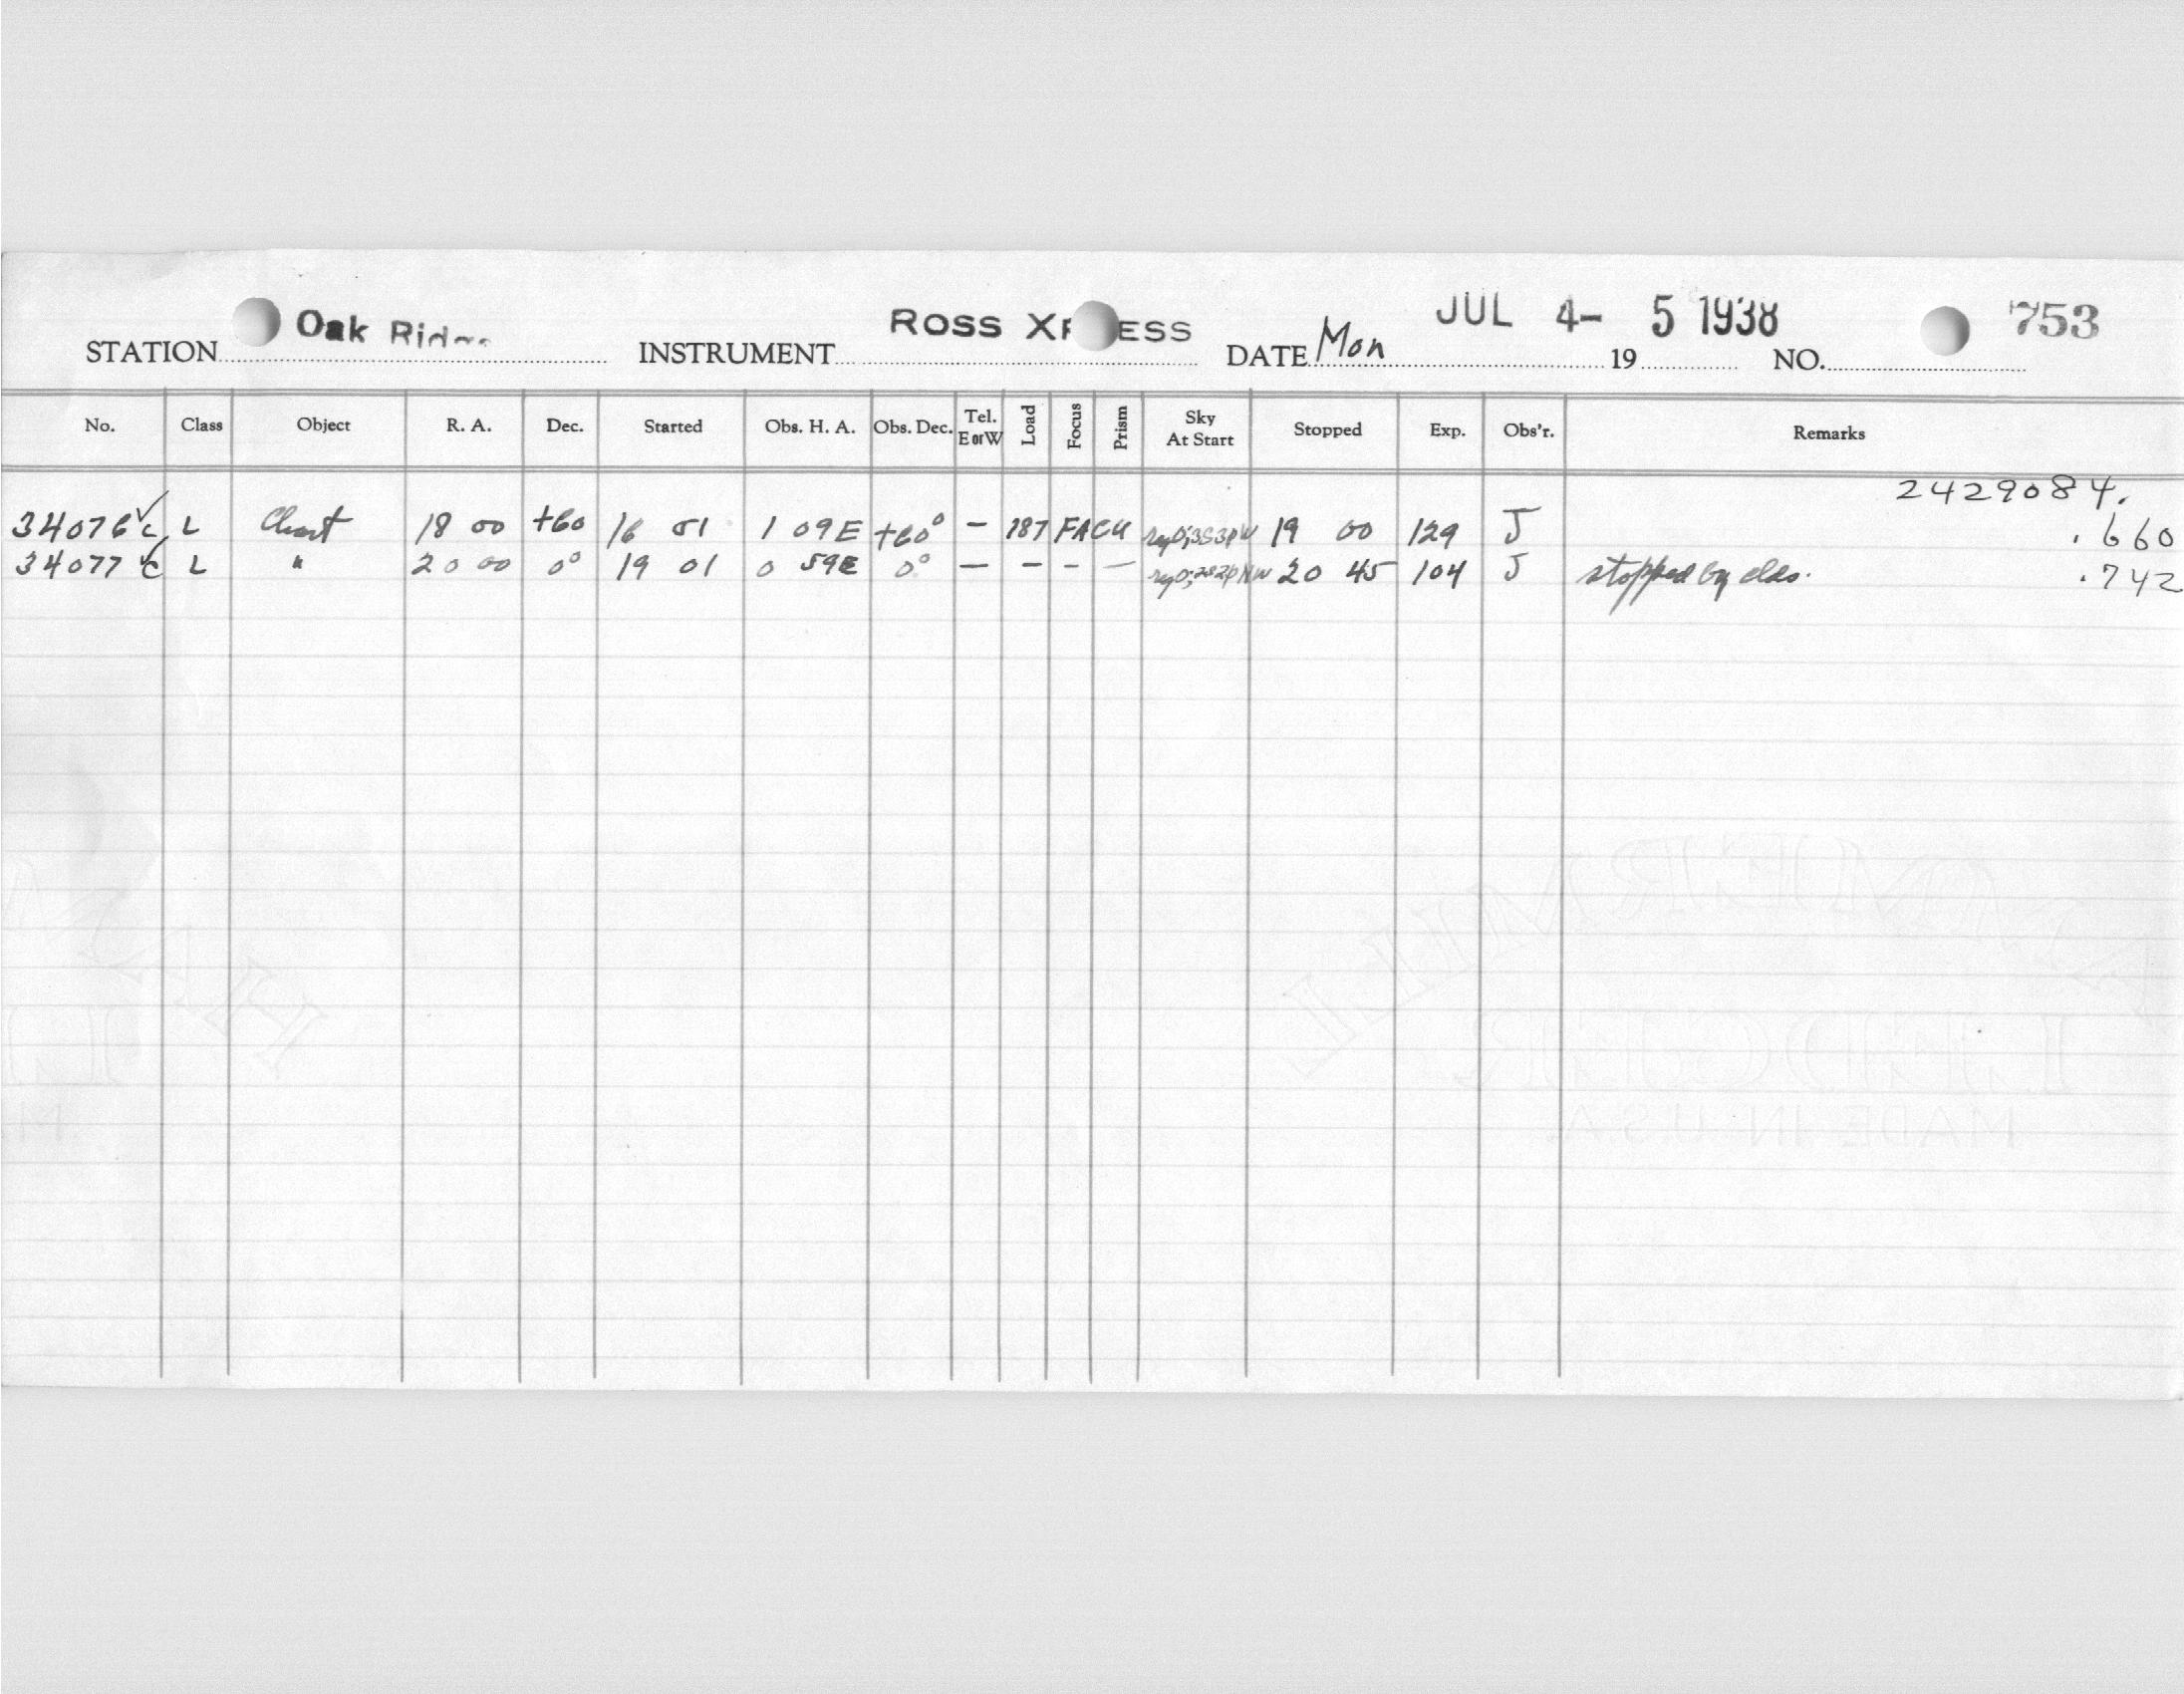 Oak Ridge ROSS XPRESS JUL 4- 5 1938 753
STATION INSTRUMENT DATE Mon 19 NO.
No. Class Object R. A. Dec. Started Obs. H. A. Obs. Dec. Tel. E or W Load Focus Prism Sky At Start Stopped Exp. Obs'r. Remarks
2429084.
34076 ✓ L Chart 18 00 +60 16 51 1 09E +60° - 187 FACU 19 00 129 J .660
34077 ✓ L " 20 00 0° 19 01 0 59E 0° - - - - 20 45 104 J stopped by clds. .742
LEDGER
MADE IN U.S.A.